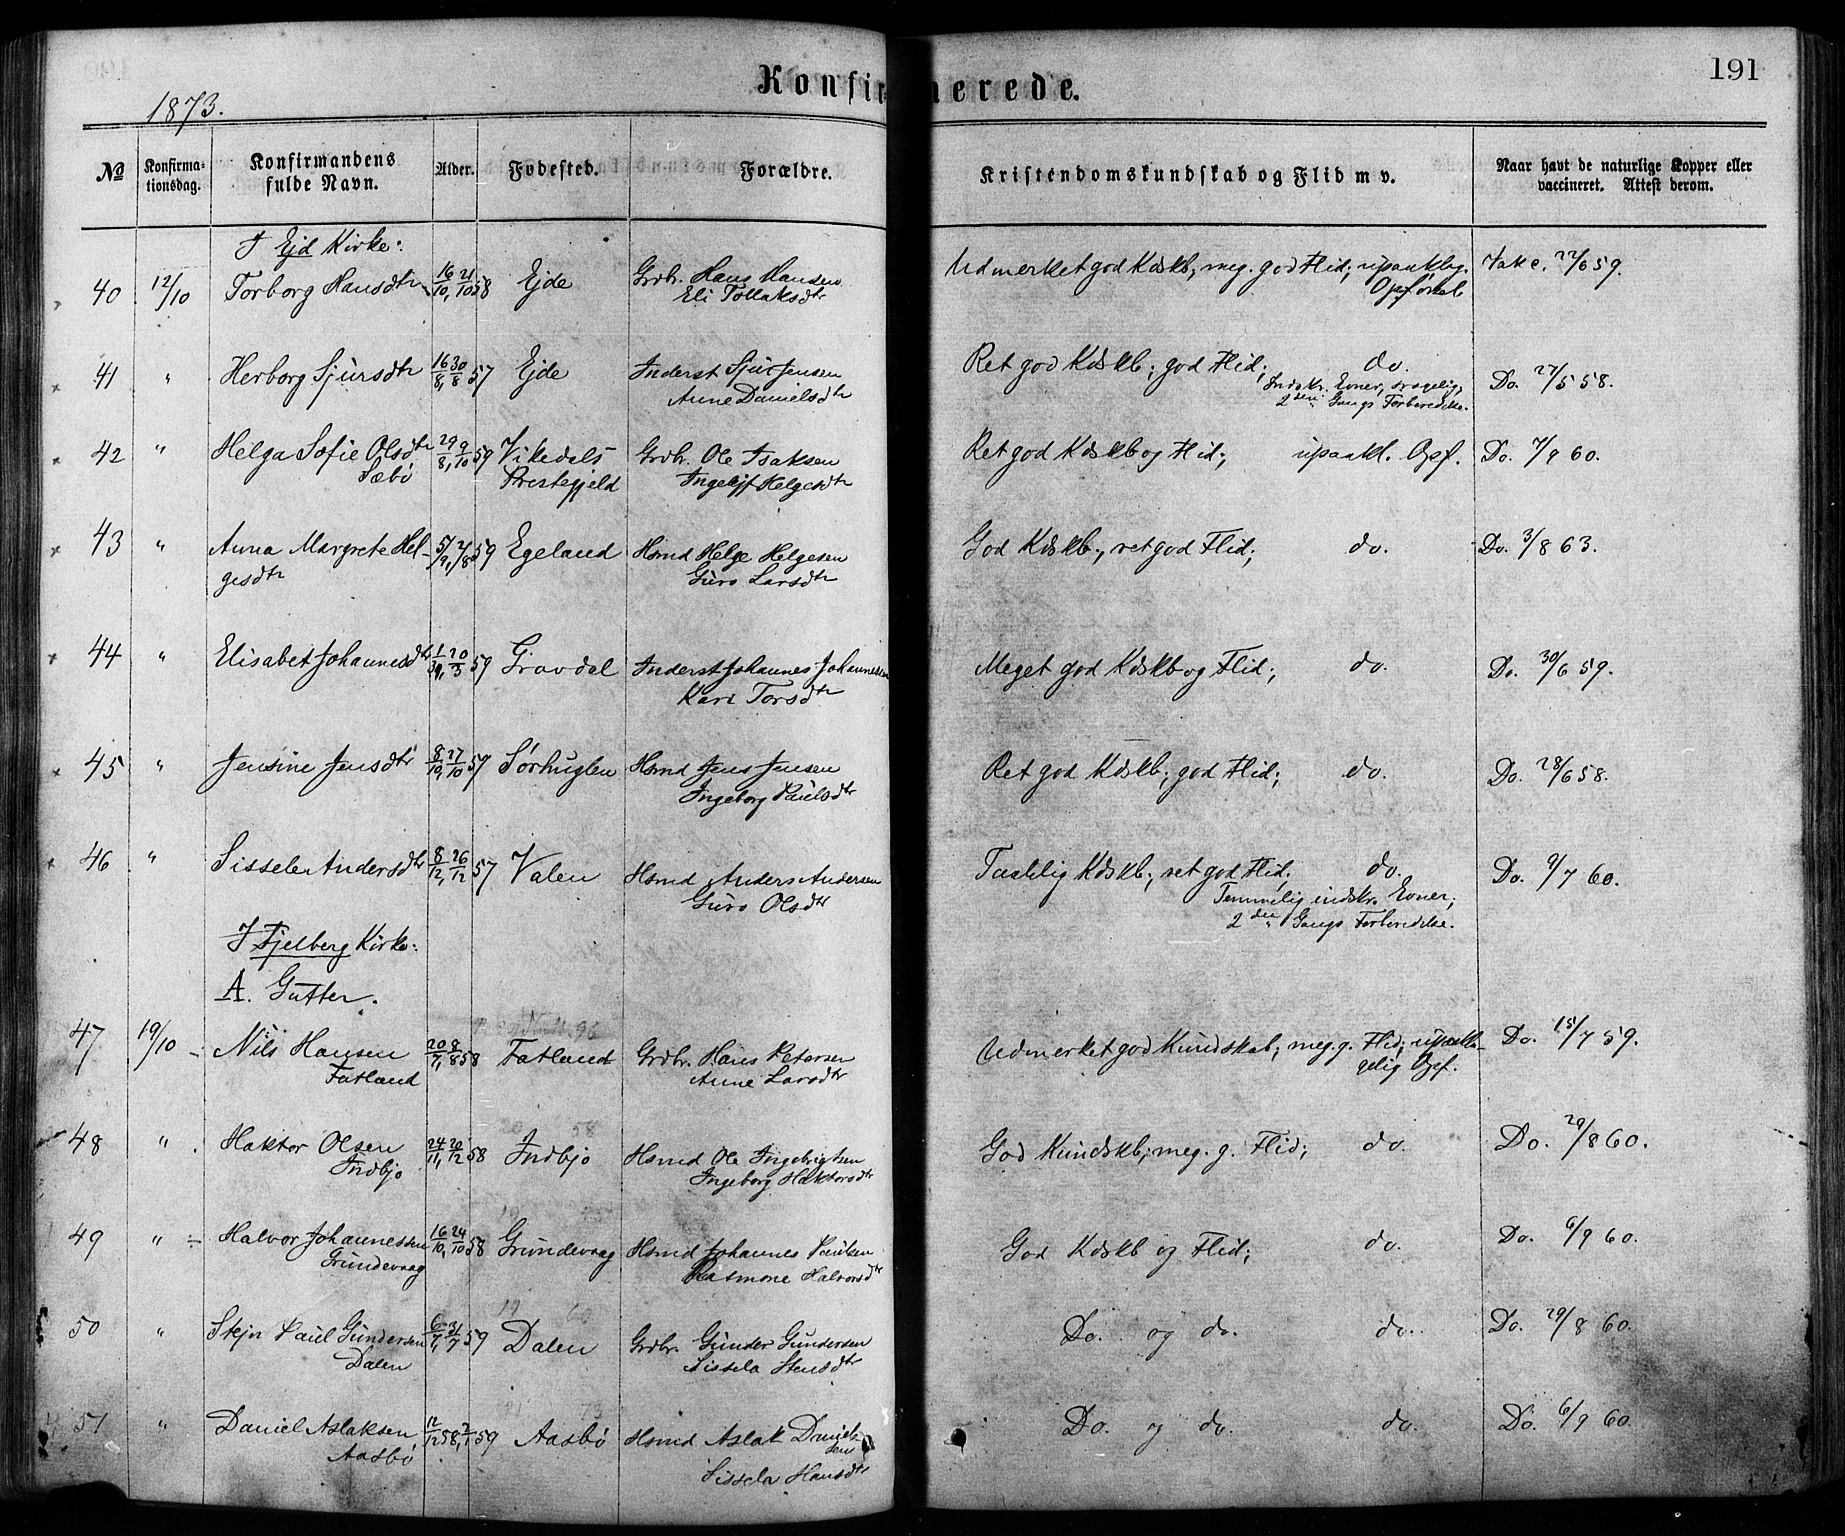 Konfirmerede.
191
1873.
No
Konfirma-
tionsdag.
Konfirmandens
fulde Navn.
Alder.
Fødested.
Forældre.
Kristendomskundskab og Flid m v.
Naar havt de naturlige Kopper eller
vaccineret. Attest derom.
I Ejd Kirke:
40 12/10 Torborg Hansdtr 16/10, 21/10 58 Ejde Grdbr. Hans Hansen Udmerket god Kdskb; meg. god Flid; upaaklag. Vakc. 22/6 59.
Eli Tollaksdtr Opførsel
41 " Herborg Sjursdtr 16/8, 30/8 57 Ejde Inderst Sjur Jensen Ret god Kdskb; god Flid; do. Do. 27/5 58.
Anne Danielsdtr Indskr. Evner,
2den Gangs Forberedelse.
42 " Helga Sofie Olsdtr 29/8, 9/10 59 Vikedals Grdbr. Ole Isaksen Ret god Kdskb og Flid; upaakl. Opf. Do. 7/9 60.
Sæbø Prestegjeld Helgesdtr
43 " Anna Margrete Hel- 59 Egeland Hsmd Helge Helgesen God Kdskb., ret god Flid; do. Do. 3/8 63.
gesdtr Guro Larsdtr
44 " Elisabet Johannesdtr 20/3 59 Gravdal Inderst Johannes Johannessen Meget god Kdskb og Flid; do. Do. 30/6 59.
Kari Torsdtr
45 " Jensine Jensdtr 8/10, 27/10 57 Sørhuglen Hsmd Jens Jensen Ret god Kdskb; god Flid; do. Do. 28/6 58.
Ingeborg Paulsdtr
46 " Sissela Andersdtr 8/12, 26/12 57 Valen Hsmd Anders Andersen Taalelig Kdskb; ret god Flid; do. Do. 9/7 60.
Guro Olsdtr Temmelig indskr. Evner;
2den Gangs Forberedelse.
I Fjelberg Kirke:
A. Gutter.
47 19/10 Nils Hansen 20/7, 8/8 58 Fatland Grdbr. Hans Petersen Udmerket god Kundskab; meg. g. Flid; upaakla- Do. 15/7 59.
Fatland Anne Larsdtr gelig Opf.
48 " Haktor Olsen 24/11, 20/12 58 Indbjo Hsmd Ole Ingebrigtsen God Kundskb; meg. g. Flid; do. Do. 29/8 60.
Indbjo Ingeborg Haktorsdtr
49 " Halvor Johannessen 16/10, 24/10 58 Grundevaag Hsmd Johannes Paulsen God Kdskb og Flid; do. Do. 6/9 60.
Grundevaag Rasmone Halvorsdtr
50 " Stejn Paul Gundersen 6/7, 31/7 59 Dalen Grdbr. Gunder Gundersen Do. og do. do. Do. 29/8 60.
Dalen Sissela Stensdtr
51 " Daniel Aslaksen 12/12 58, 2/1 59 Aasbø Hsmd Aslak Daniel- Do. og do. do. Do. 6/9 60.
Aasbø sen
Sissela Hansdtr